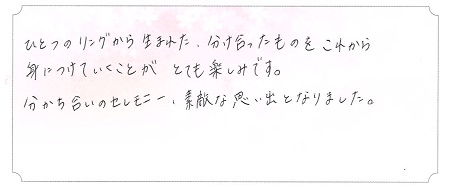 ひとつのリングから生まれた、分け合ったものをこれから
身につけていくことが とても楽しみです。
分かち合いのセレモニー、素敵な思い出となりました。